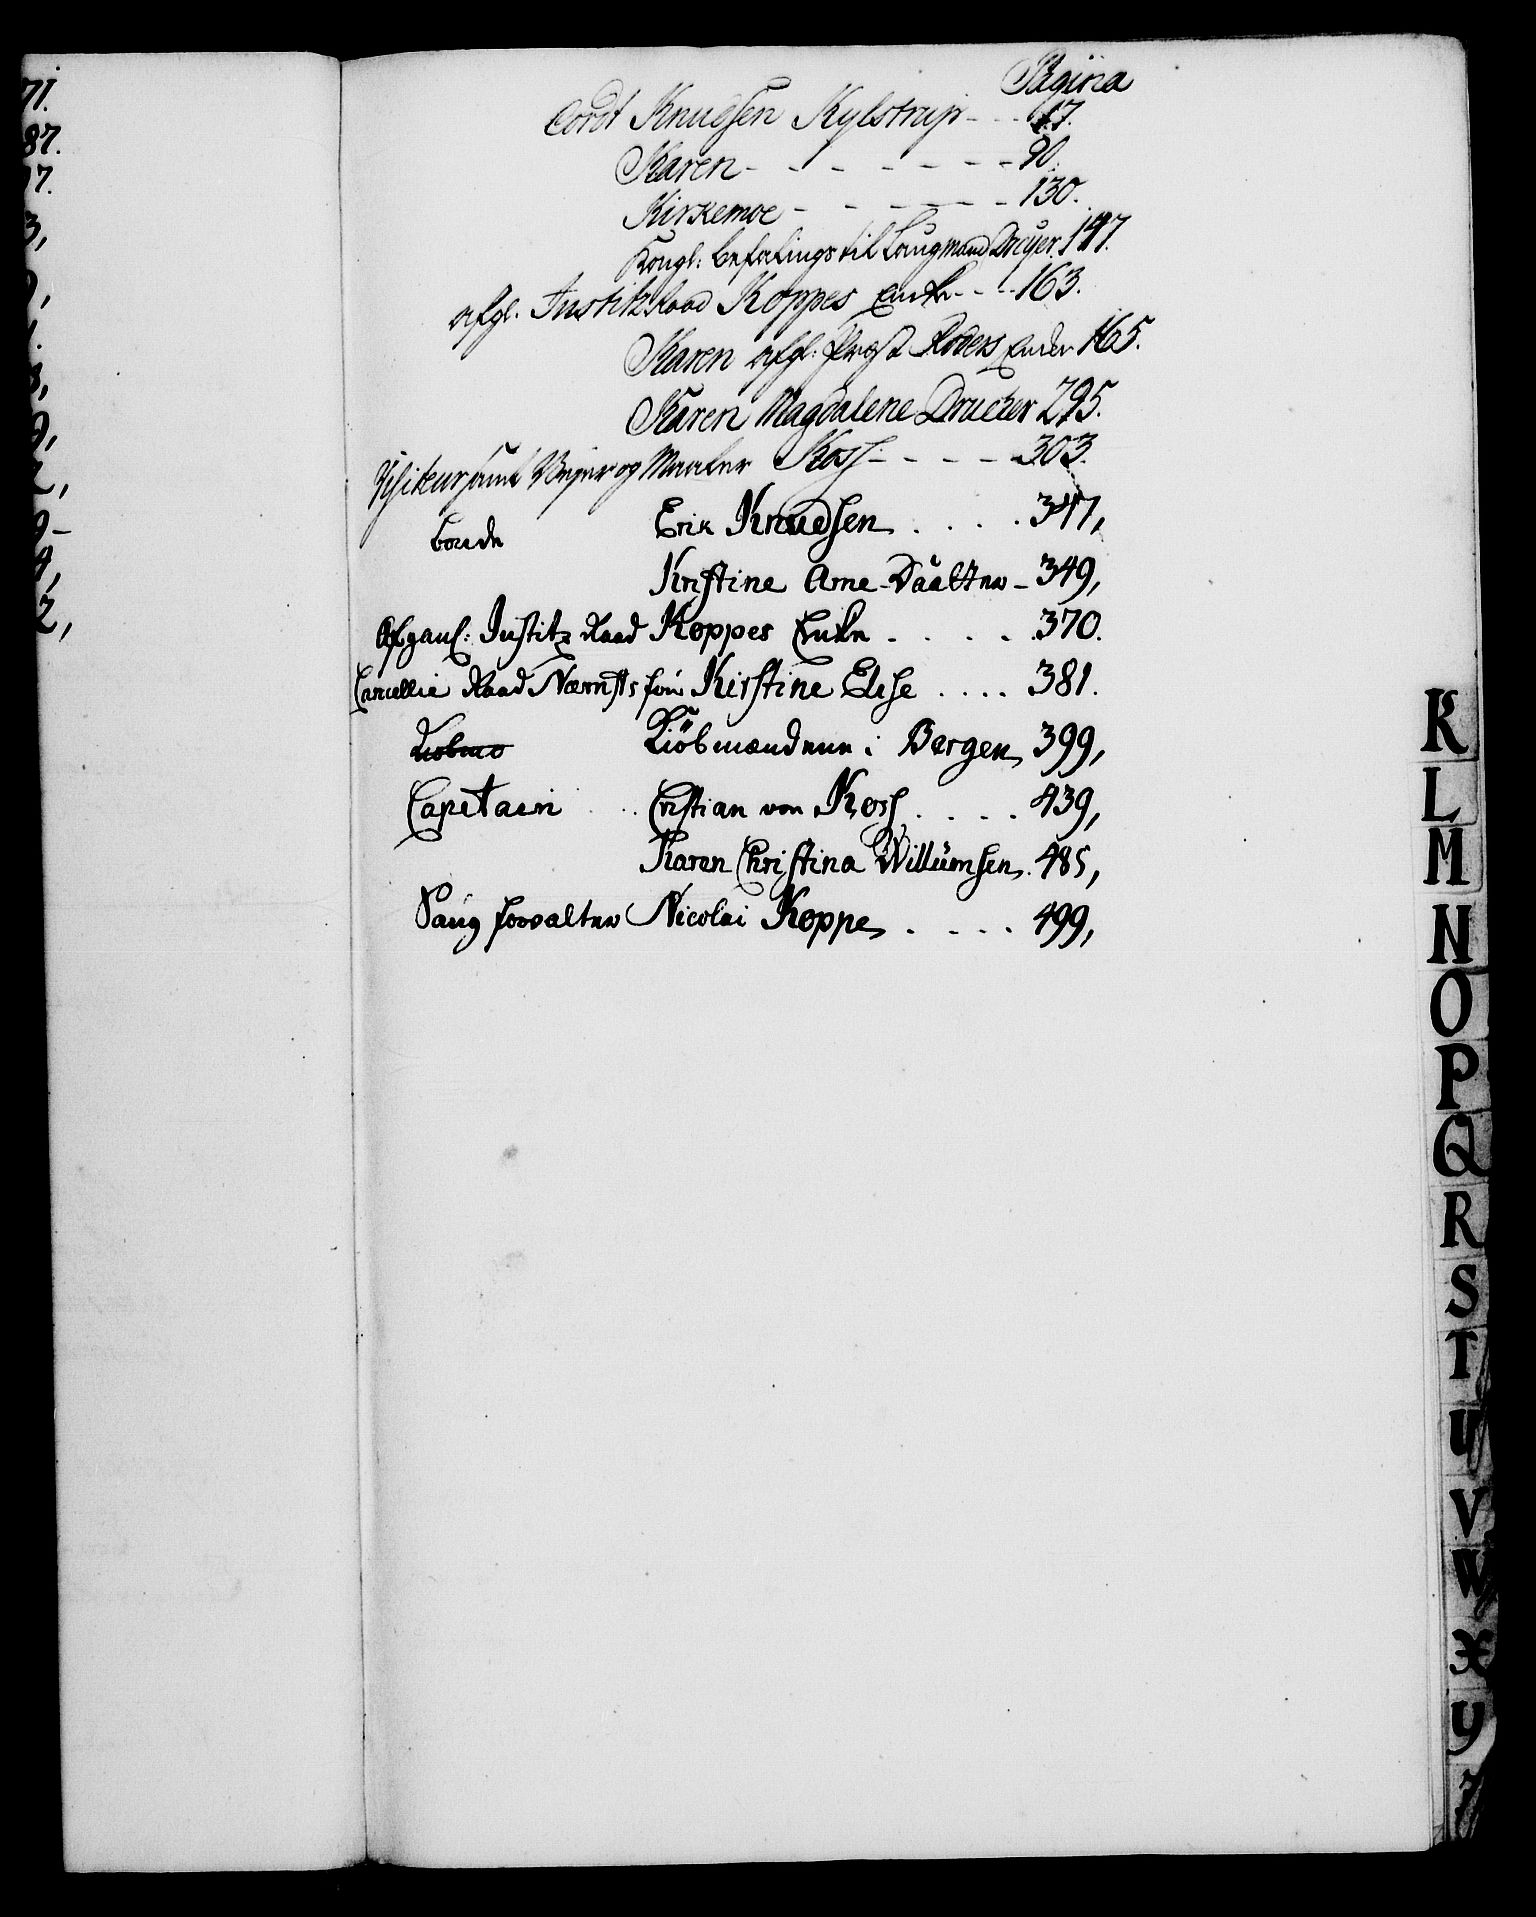 71.
87.
7.
3,
Pagina
Cordt Knudsen Kylstrup - - - 17.
Karen - - - - - - - 90.
Kirkemoe - - - - - 130.
Kongl: befalings til Laugmand Dreyer 147.
afgl. Justitz Raad Koppes Enke - - - 163.
Karen afgl: Præst Roders Enke 165.
Karen Magdalene Drucker 295.
Visiteur samt Vejer og Maaler Koss - - - - - 303.
bonde Erik Knudsen . . . . 347,
Kristine Arne-Daatter - 349,
Afgangl: Justitz Raad Koppes Enke . . . . 370.
Cancellie Raad Næmsts Kirstine Elise . . . . 381.
Kiöbmændene i Bergen 399,
Capitain . . Cristian von Koss . . . . 439,
Karen Christina Willumsen . 485,
Saug forvalter Nicolai Koppe . . . . 499,
K
L
M
N
O
P
Q
R
S
T
U
V
W
X
Y
Z